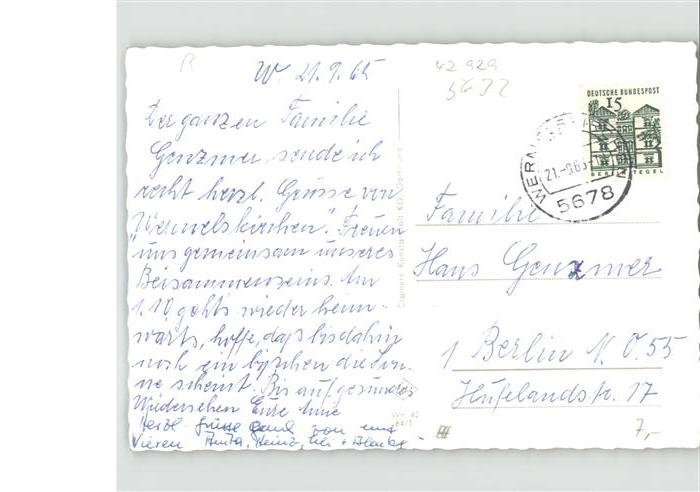 W. 21.9.65
42 929
5632
Der ganzen Familie
Genzmer, sende ich
recht herzl. Grüsse von
"Wermelskirchen". Freuen
uns gemeinsam unseres
Beisammenseins. Am
1.10 gehts wieder heim-
wärts, hoffe, daß bis dahin
noch ein bißchen die Son-
ne scheint. Bis auf gesundes
Wiedersehen Eure
Herzl. Grüße auch von uns
Vieren Anita, Heinz,
DEUTSCHE BUNDESPOST
15
BERLIN TEGEL
21.-9.65
5678
Familie
Hans Genzmer
1 Berlin N.O. 55
Hufelandstr. 17
7,-